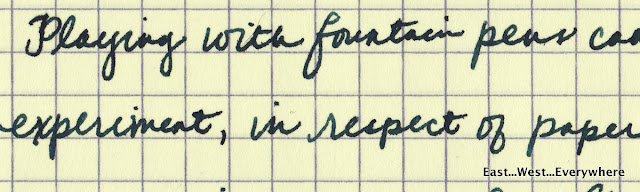 Playing with fountain pens
experiment, in respect of paper
East...West...Everywhere